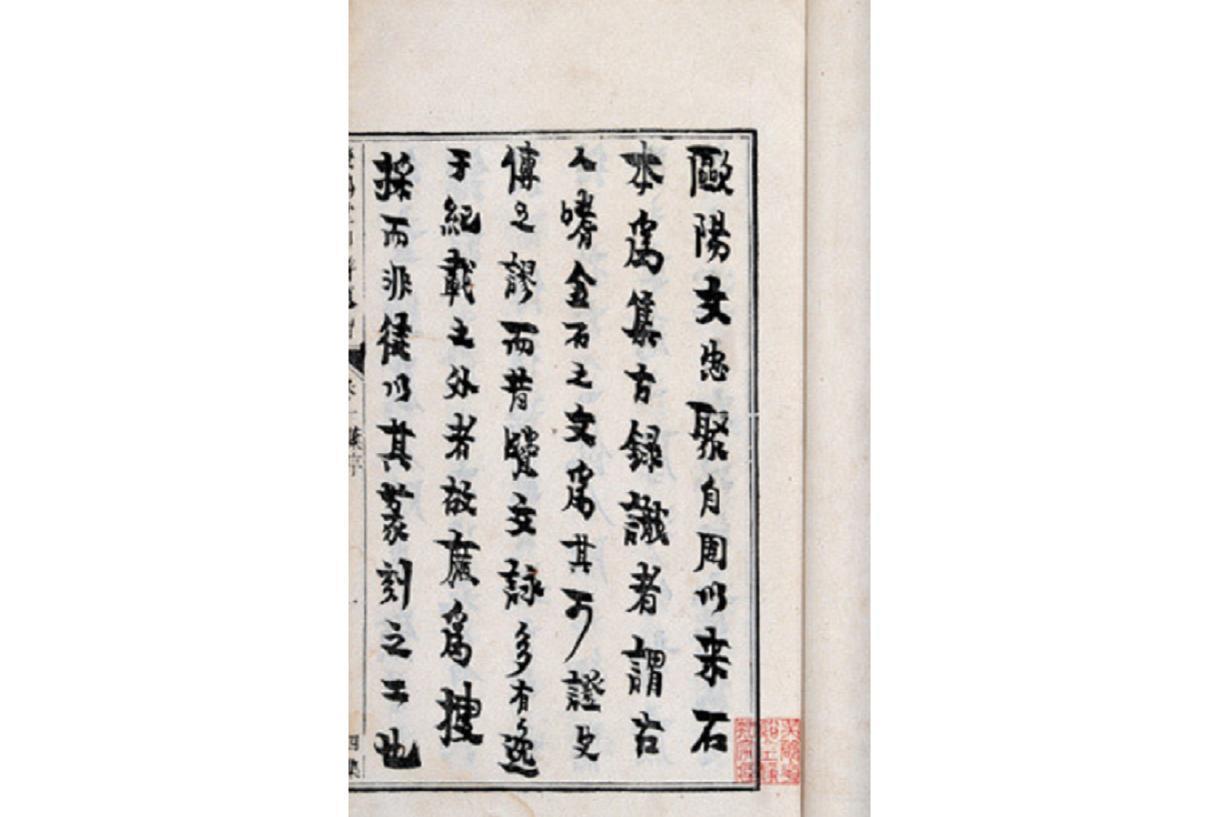 歐陽文忠聚自周以来石
本為集古録識者謂古
人嗜金石之文為其可證史
傳之謬而昔賢文詠多有逸
于紀載之外者故廣為搜
採而非徒以其篆刻之工也